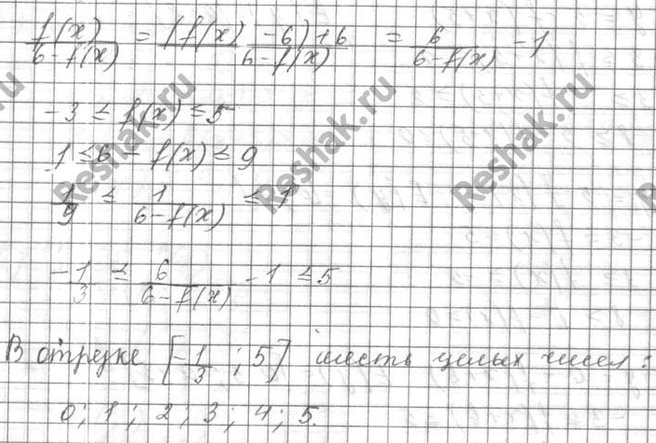 f(x)/(6-f(x)) = ((f(x) -6)+6)/(6-f(x)) = 6/(6-f(x)) -1
-3 ≤ f(x) ≤ 5
1 ≤ 6 - f(x) ≤ 9
1/9 ≤ 1/(6-f(x)) ≤ 1
-1/3 ≤ 6/(6-f(x)) -1 ≤ 5
В отрезке [-1/3 ; 5] шесть целых чисел:
0; 1; 2; 3; 4; 5.
Reshak.ru
Reshak.ru
Reshak.ru